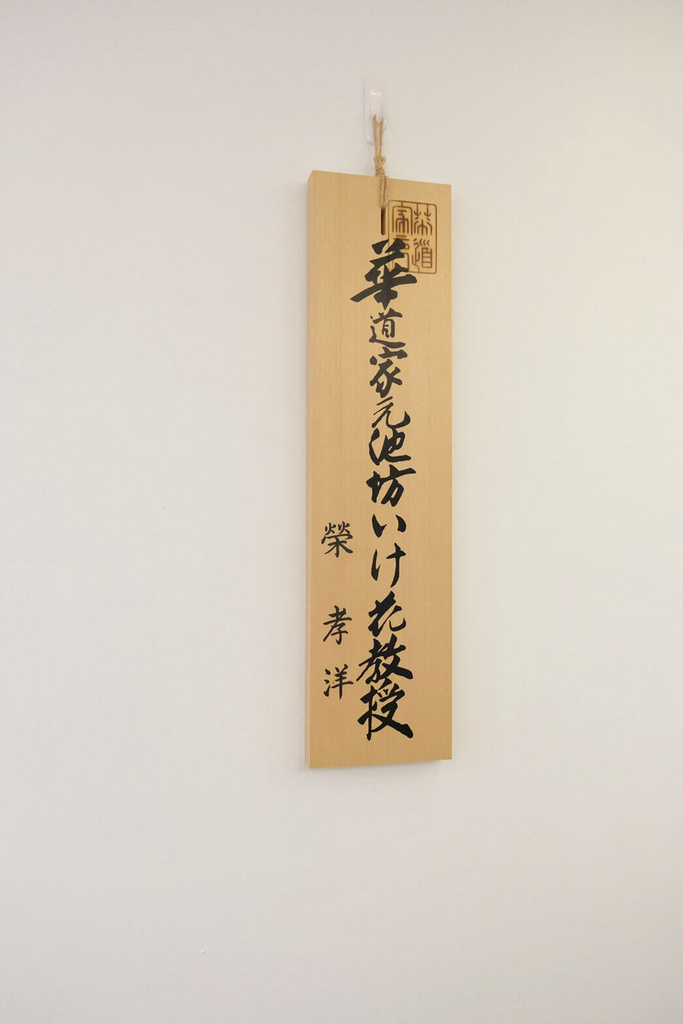 華道家元
華道家元池坊いけ花教授
榮 孝洋